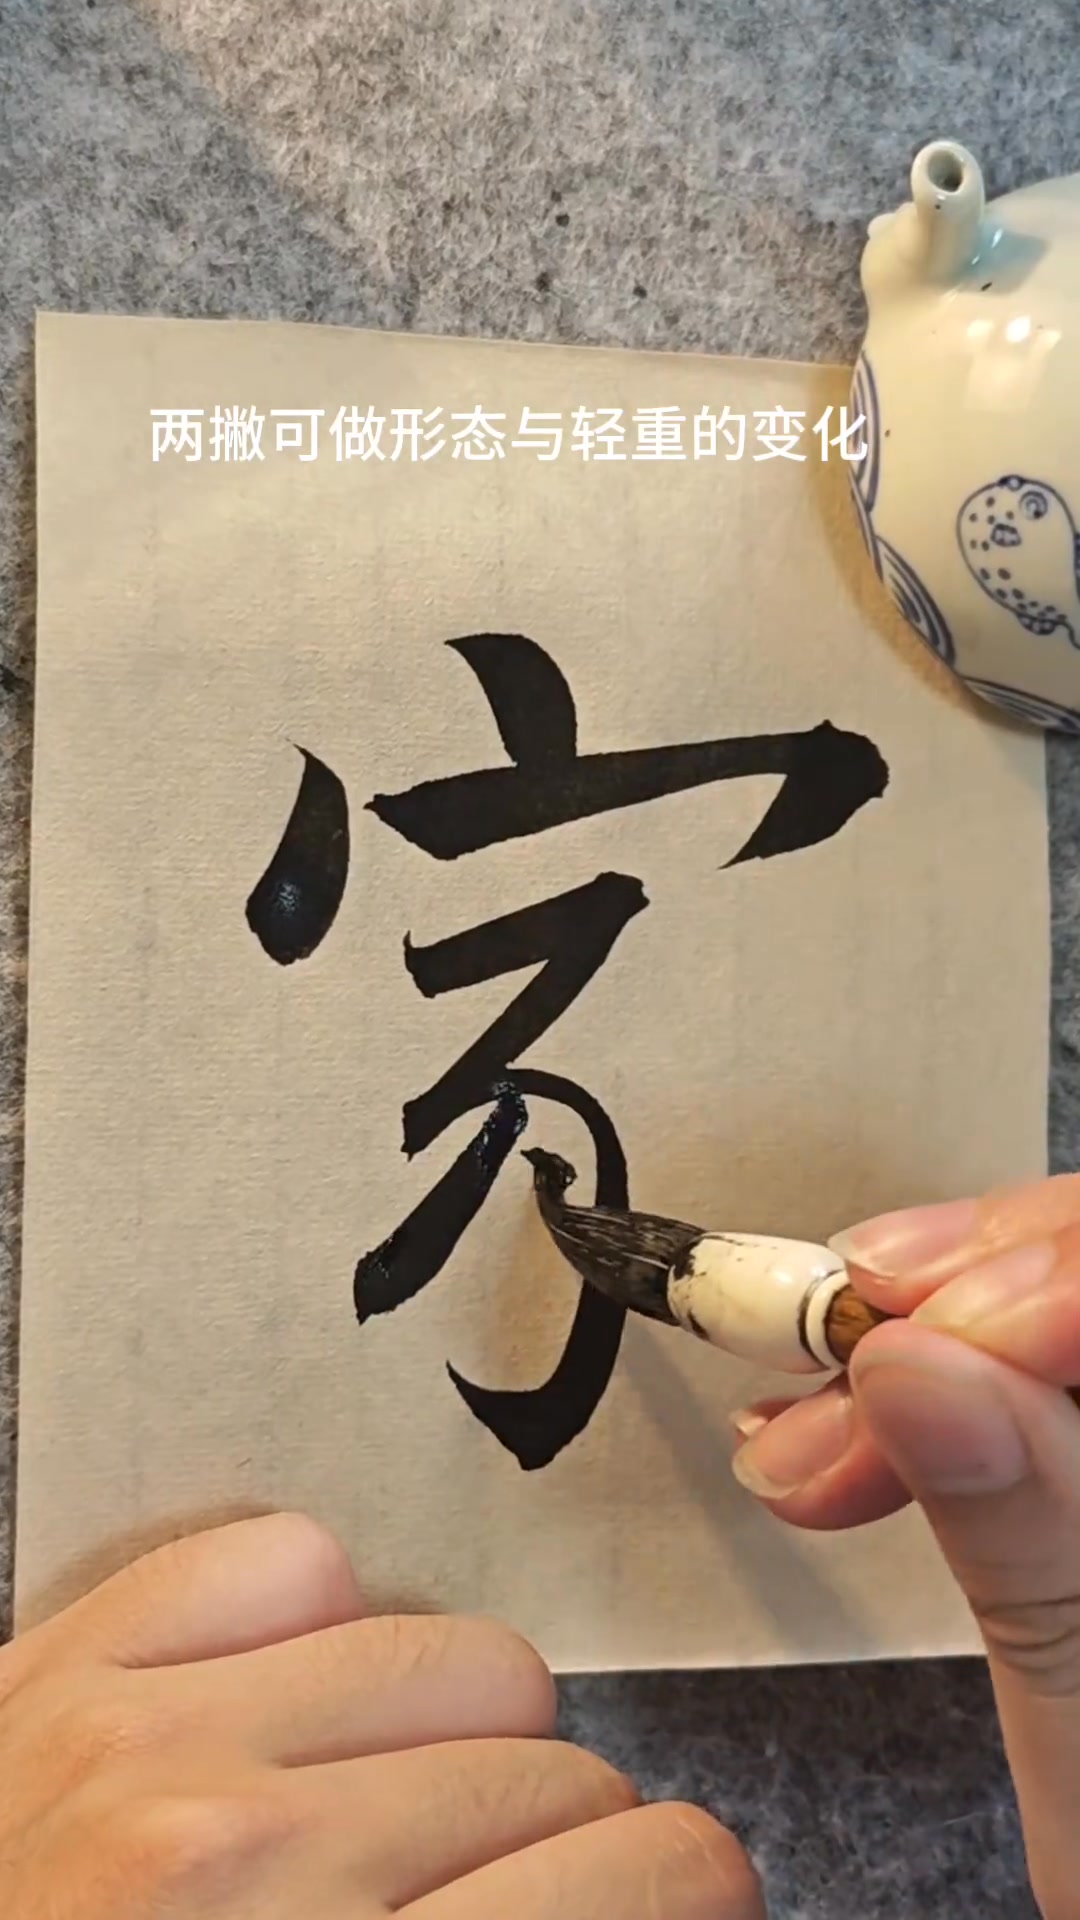 两撇可做形态与轻重的变化
家